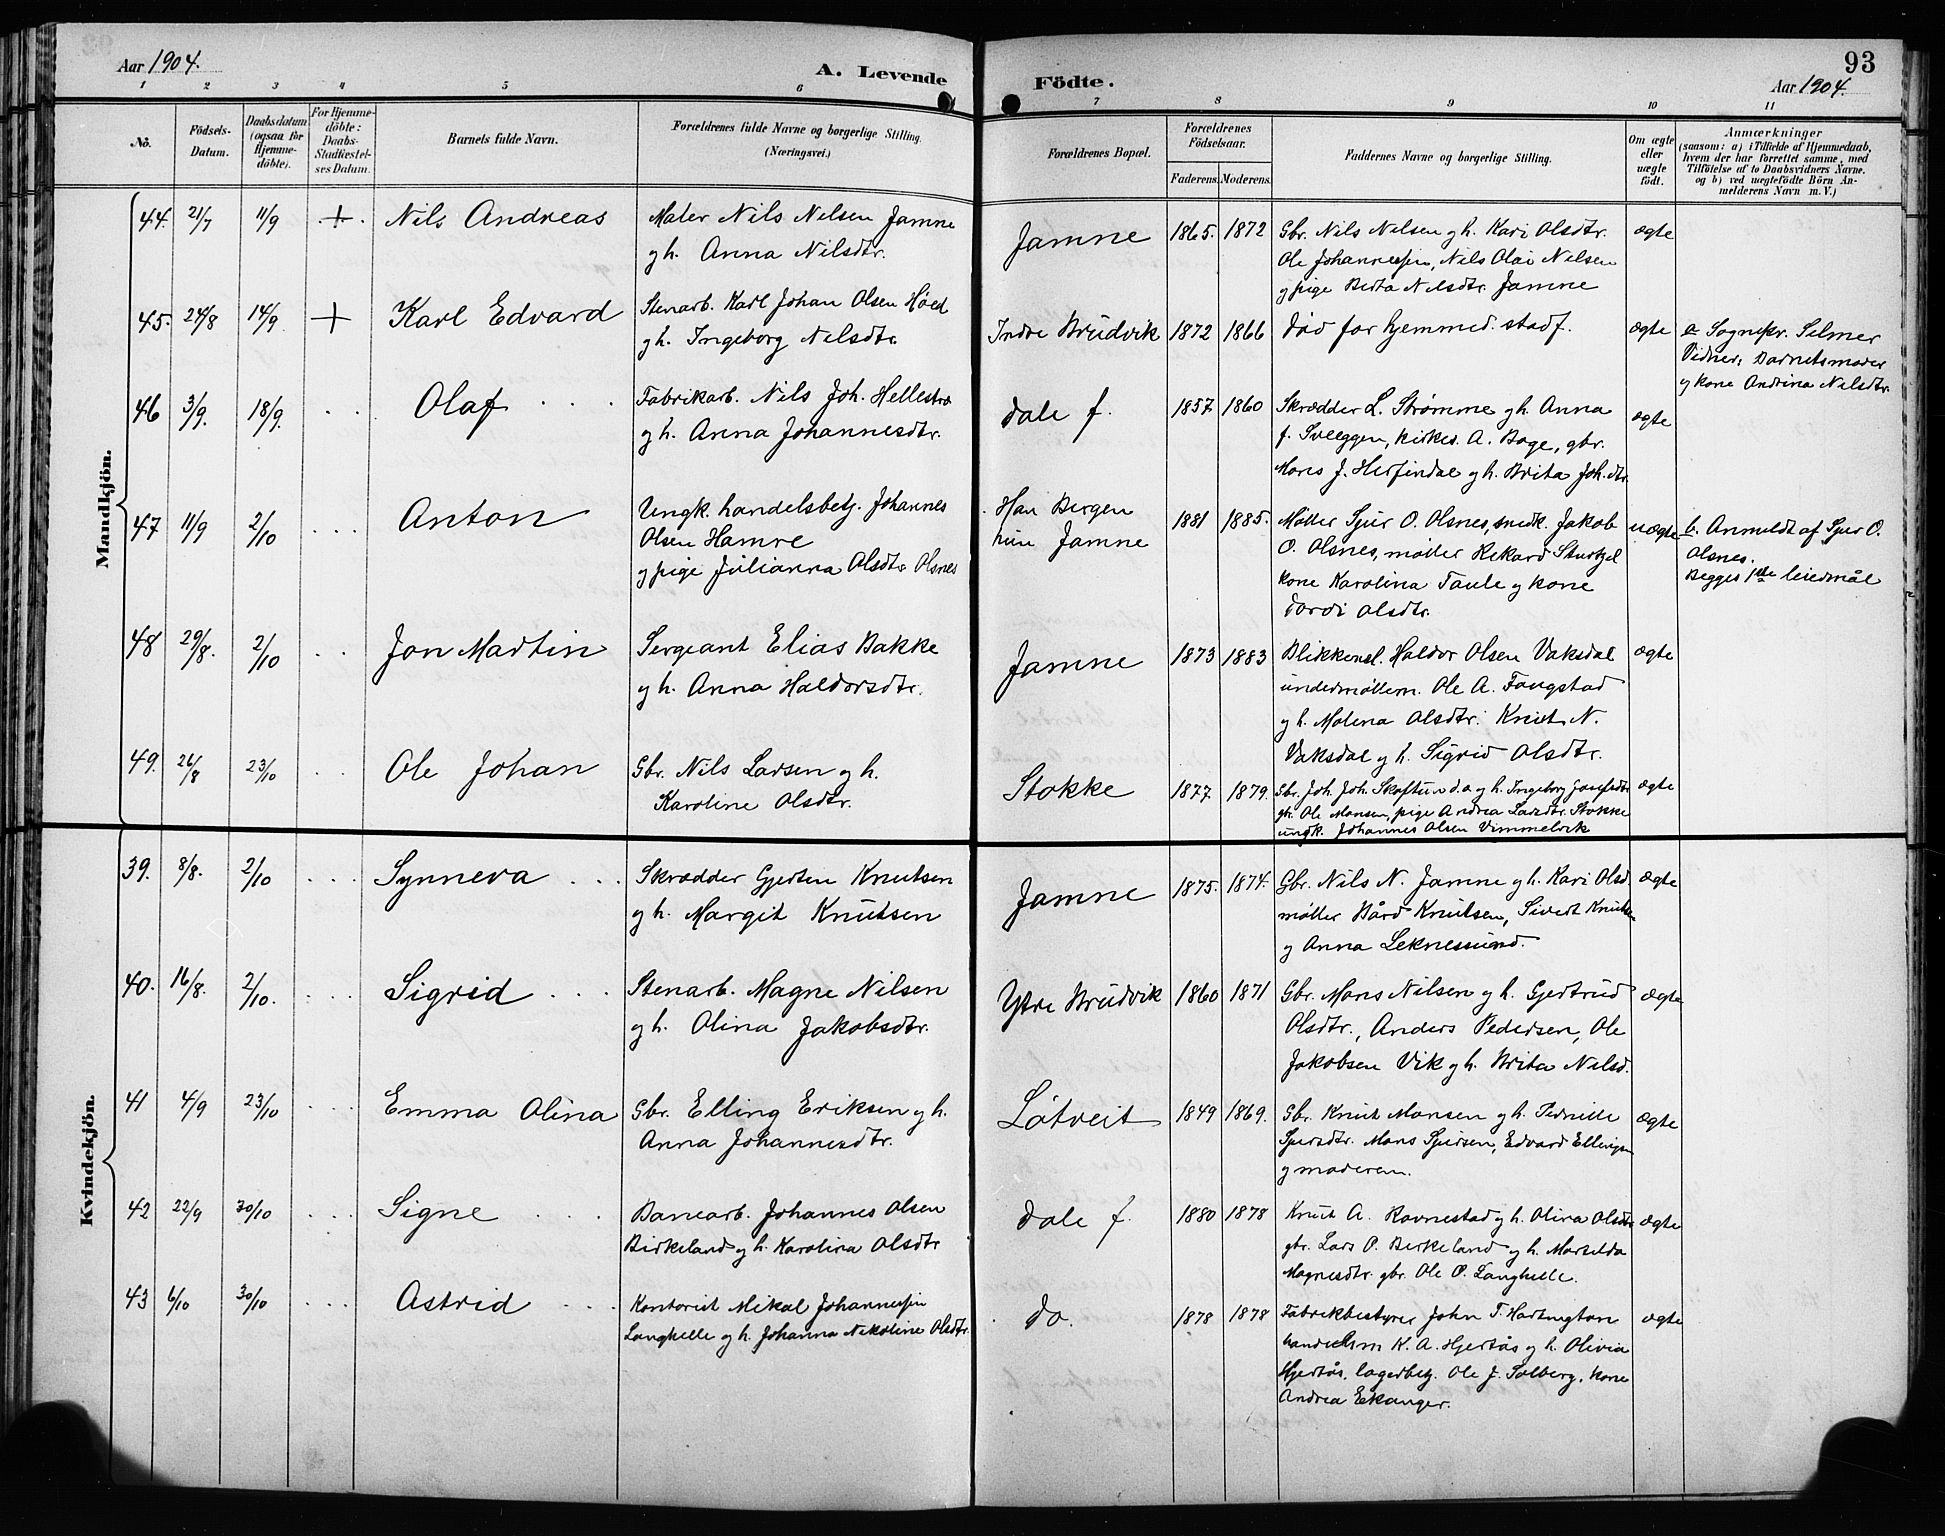 Aar 1904.
A. Levende
Födte.
93
Aar 1904.
1 2 3 4 5 6 7 8 9 10 11
No.
Födsels-
Datum.
Daabsdatum
(ogsaa for
Hjemme-
döbte).
For Hjemme-
döbte:
Daabs-
Stadfæstel-
ses Datum.
Barnets fulde Navn.
Forældrenes fulde Navne og borgerlige Stilling.
(Næringsvei.)
Forældrenes Bopæl.
Forældrenes
Födselsaar.
Faderens. Moderens.
Faddernes Navne og borgerlige Stilling.
Om ægte
eller
uægte
födt.
Anmærkninger
(saasom: a) i Tilfælde af Hjemmedaab,
hvem der har forrettet samme, med
Tilföielse af to Daabsvidners Navne.
og b) ved uægtefödte Börn An-
melderens Navn m. V.)
Mandkjön.
44. 21/7 11/9 + Nils Andreas
Maler Nils Nilsen Jamne
y h. Anna Nilsdtr.
Jamne 1865. 1872
Gbr. Nils Nilsen y h. Kari Olsdtr.
Ole Johannessen, Nils Olai Nilsen
y pige Berta Nilsdtr. Jamne
ægte
45. 24/8 14/9 + Karl Edvard
Stenarb. Karl Johan Olsen
y h. Ingeborg Nilsdtr
Indre Brudvik 1872 1866
Død før hjemmed. stadf.
ægte
a Sognepr. Selmer
Vidner: Barnets moder
y kone Andrina Nilsdtr.
46 3/9. 18/9. Olaf
Fabrikarb. Nils Joh. Hellestræ
y h. Anna Johannesdtr.
Dale f. 1857 1860
Skrædder L. Strømme y h. Anna
f. kirkes. A. Boge, gbr.
Mons J. Herfindal y h. Brita Joh.dtr.
ægte
47 11/9 2/10 Anton
Ungk. handelsbetj. Johannes
Olsen Hamre
y pige Julianna Olsdtr Olsnes
Han Bergen
hun Jamne
1881 1885.
Møller Sjur O. Olsnes, snedk. Jakob
O. Olsnes, møller Rikard
kone Karolina Taule y kone
Dordi Olsdtr.
uægte
b. Anmeldt af Sjur O.
Olsnes.
Begges 1ste leiermål
48 29/8. 2/10 Jon Martin
Sergeant Elias Bakke
y h. Anna Haldorsdtr.
Jamne 1873 1883
Blikkensl. Haldor Olsen Vaksdal
undermøllern. Ole A. Fangstad
y h. Molena Olsdtr. Knut N.
Vaksdal y h. Sigrid Olsdtr.
ægte
49. 26/8 23/10 Ole Johan
Gbr. Nils Larsen y h.
Karoline Olsdtr.
Stokke 1877 1879.
Gbr. Joh. Joh. Skaftun d.a. y h. Ingeborg
gbr. Ole Monsen, pige Andrea Larsdtr. Stokke
ungk. Johannes Olsen Vimmelvik
ægte
Kvindekjön.
39. 8/8. 2/10 Synneva
Skrædder Gjerten Knutsen
y h. Margit Knutsen
Jamne 1875. 1874.
Gbr. Nils N. Jamne y h. Kari Olsd.
møller Bård Knutsen, Sivert Knutsen
y Anna Leknessund.
ægte
40. 16/8. 2/10. Sigrid
Stenarb. Magne Nilsen
y h. Olina Jakobsdtr.
Ytre Brudvik 1860 1871
Gbr. Mons Nilsen y h. Gjertrud
Olsdtr., Anders Pedersen, Ole
Jakobsen Vik y h. Brita Nilsd.
ægte
41 4/9 23/10 Emma Olina
Gbr. Elling Eriksen y h.
Anna Johannesdtr.
Løtveit 1849 1869.
Gbr. Knut Monsen y h. Pernille
Sjursdtr. Mons Sjursen, Edvard Ellingsen
y moderen.
ægte
42 22/9 30/10 Signe
Banearb. Johannes Olsen
Birkeland y h. Karolina Olsdtr
Dale f. 1880 1878
Knut A. Ravnestad y h. Olina Olsdtr
gbr. Lars P. Birkeland y h. Marselda
Magnesdtr. gbr. Ole P. Langhelle.
ægte
43 6/10 30/10 Astrid
Kontorist Mikal Johannessen
Langhelle y h. Johanna Nikoline Olsdtr.
do. 1878 1878
Fabrikbestyrer John T. Hartington
handelsm K. A. Hjertås y h. Olivia
Hjertås, lagerbetj. Ole J. Solberg, kone
Andrea Ekanger.
ægte